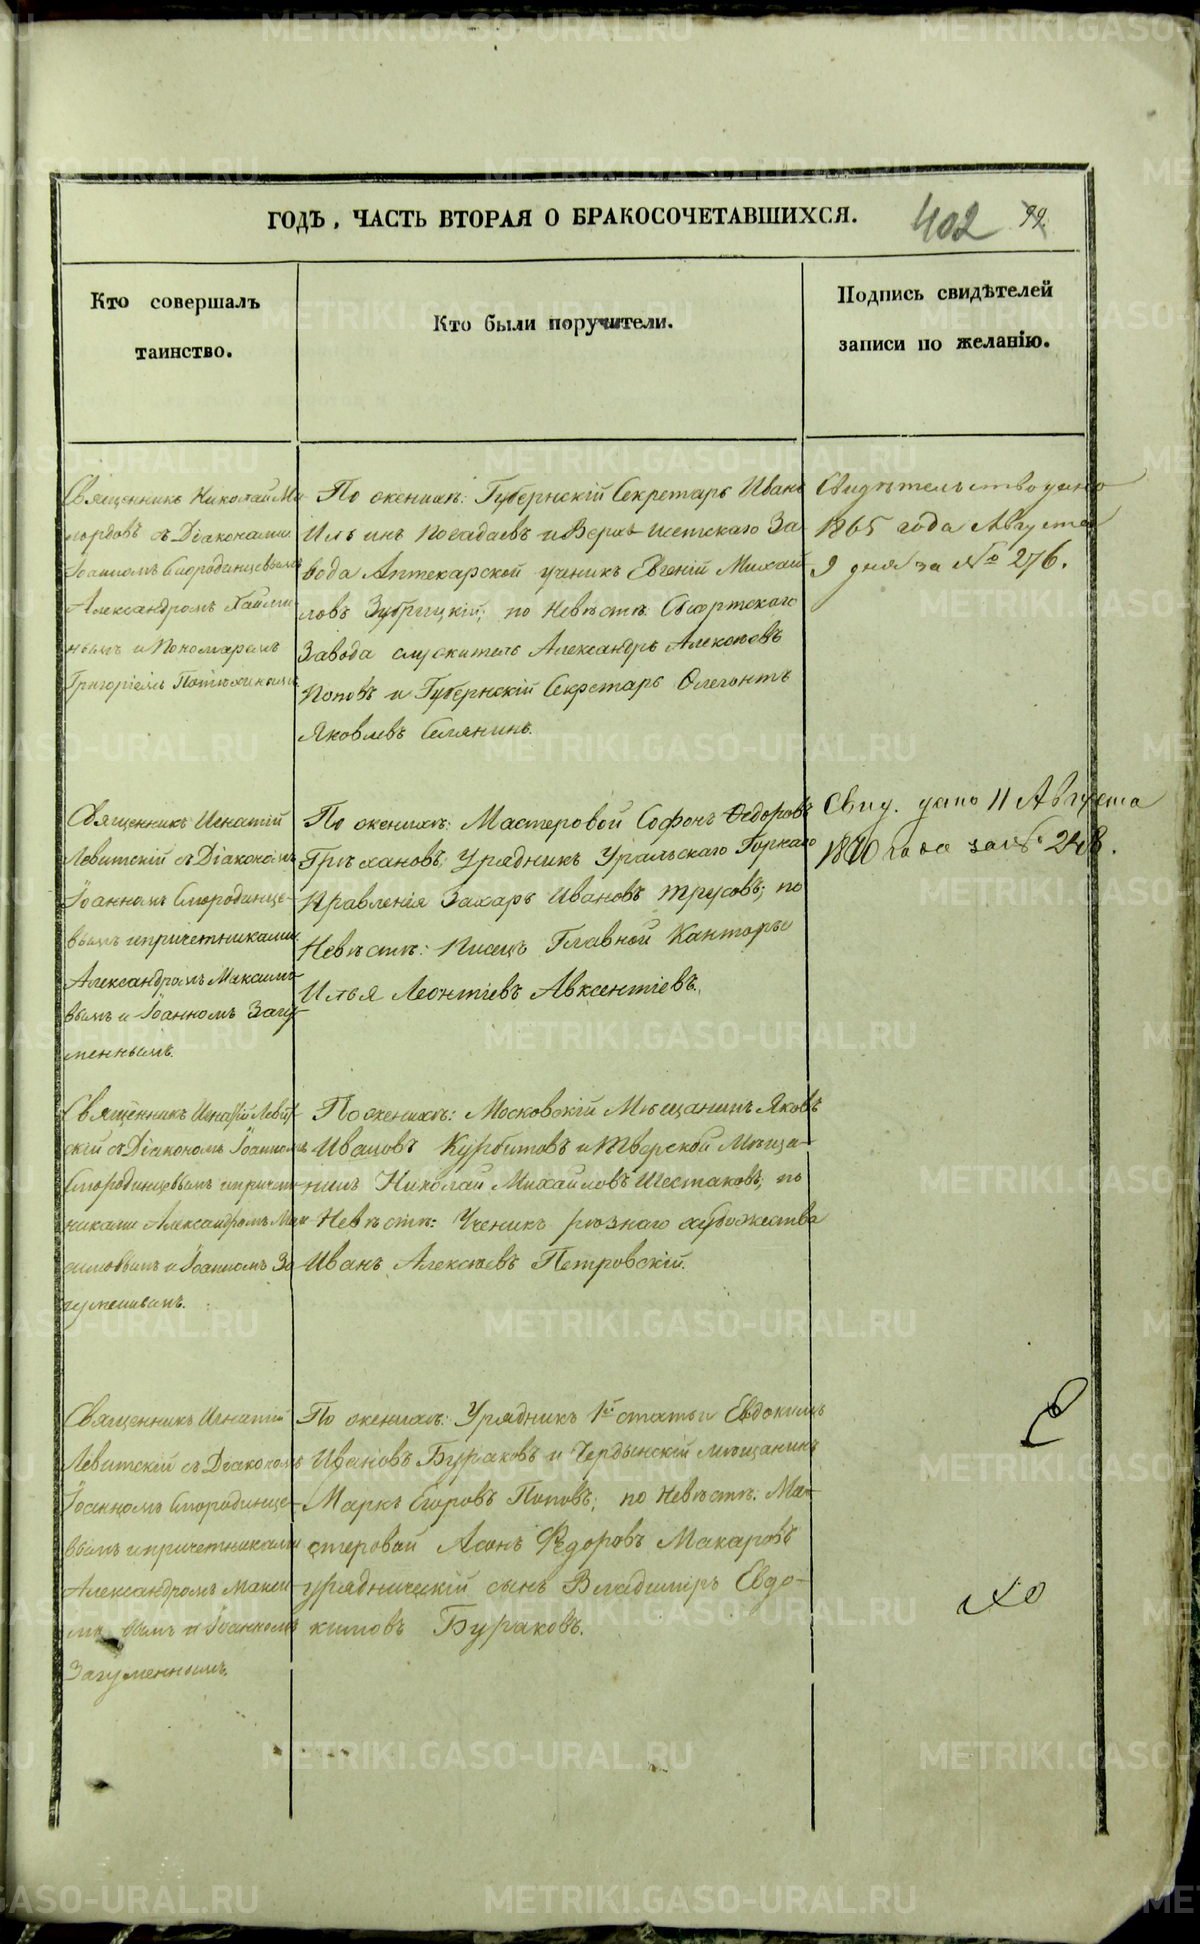 ГОДЪ, ЧАСТЬ ВТОРАЯ О БРАКОСОЧЕТАВШИХСЯ.
402
Кто совершалъ
таинство.
Кто были поручители.
Подпись свидѣтелей
записи по желанію.
Священникъ Николай Ми
съ Діаконами
Іоанномъ Смородинцевымъ
Александромъ
нымъ и Пономаремъ
Григоріемъ
По женихѣ: Губернскій Секретарь Иванъ
Ильинъ Погадаевъ и Верхъ Исетскаго За
вода Аптекарской ученикъ Евгеній Михай
ловъ Зубрицкій; по Невѣстѣ Сысертскаго
Завода служитель Александръ Алексѣевъ
Поповъ и Губернскій Секретарь
Яковлевъ Селянинъ.
Свидѣтельство дано
1865 года Августа
9 дня за № 276.
Священникъ Игнатій
Левитскій съ Діакономъ
Іоанномъ Смородинце-
вымъ и причетниками
Александромъ Максимо-
вымъ и Іоанномъ Загу-
меннымъ.
По женихѣ: Мастеровой Софонъ Ѳедоровъ
Грехановъ; Урядникъ Уральскаго Горнаго
Правленія Захаръ Ивановъ Трусовъ; по
Невѣстѣ: Писецъ Главной Канторы
Илья Леонтіевъ Авксентіевъ.
Свид. дано 11 Августа
1870 года за № 248.
Священникъ Игнатій Левит-
скій съ Діакономъ Іоанномъ
Смородинцевымъ и причет-
никами Александромъ Мак
симовымъ и Іоанномъ За
гуменнымъ.
По женихѣ: Московскій Мѣщанинъ Яковъ
Ивановъ Курбатовъ и Тверской Мѣща-
нинъ Николай Михайловъ Шестаковъ; по
Невѣстѣ: Ученикъ рѣзнаго художества
Иванъ Алексѣевъ Петровскій.
Священникъ Игнатій
Левитскій съ Діакономъ
Іоанномъ Смородинце-
вымъ и причетниками
Александромъ Макси-
мовымъ и Іоанномъ
Загуменнымъ.
По женихѣ: Урядникъ 1й статьи Евдокимъ
Ивановъ Бураковъ и Чердынскій мѣщанинъ
Маркъ Егоровъ Поповъ; по Невѣстѣ: Ма-
стеровой Ѳедоровъ Макаровъ
урядническій сынъ Владимиръ Евдо-
кимовъ Бураковъ.
METRIKI.GASO-URAL.RU